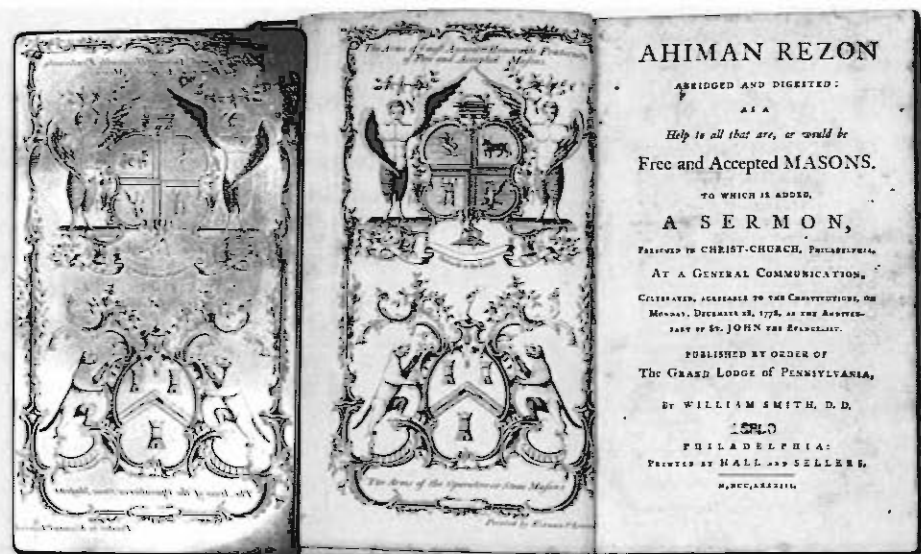 The Arms of the Operative or Stone Masons.
The Arms of yᵉ most Ancient & Honorable Fraternity
of Free and Accepted Masons.
The Arms of the Operative or Stone Masons.
Printed by
AHIMAN REZON
ABRIDGED AND DIGESTED:
AS A
Help to all that are, or would be
Free and Accepted MASONS.
TO WHICH IS ADDED,
A SERMON,
PREACHED IN CHRIST-CHURCH, PHILADELPHIA,
AT A GENERAL COMMUNICATION,
CELEBRATED, AGREEABLE TO THE CONSTITUTIONS, ON
MONDAY, DECEMBER 28, 1778, AS THE ANNIVER-
SARY OF ST. JOHN THE EVANGELIST.
PUBLISHED BY ORDER OF
The GRAND LODGE of PENNSYLVANIA,
BY WILLIAM SMITH, D. D.
PHILADELPHIA:
PRINTED BY HALL AND SELLERS,
M,DCC,LXXXIII.